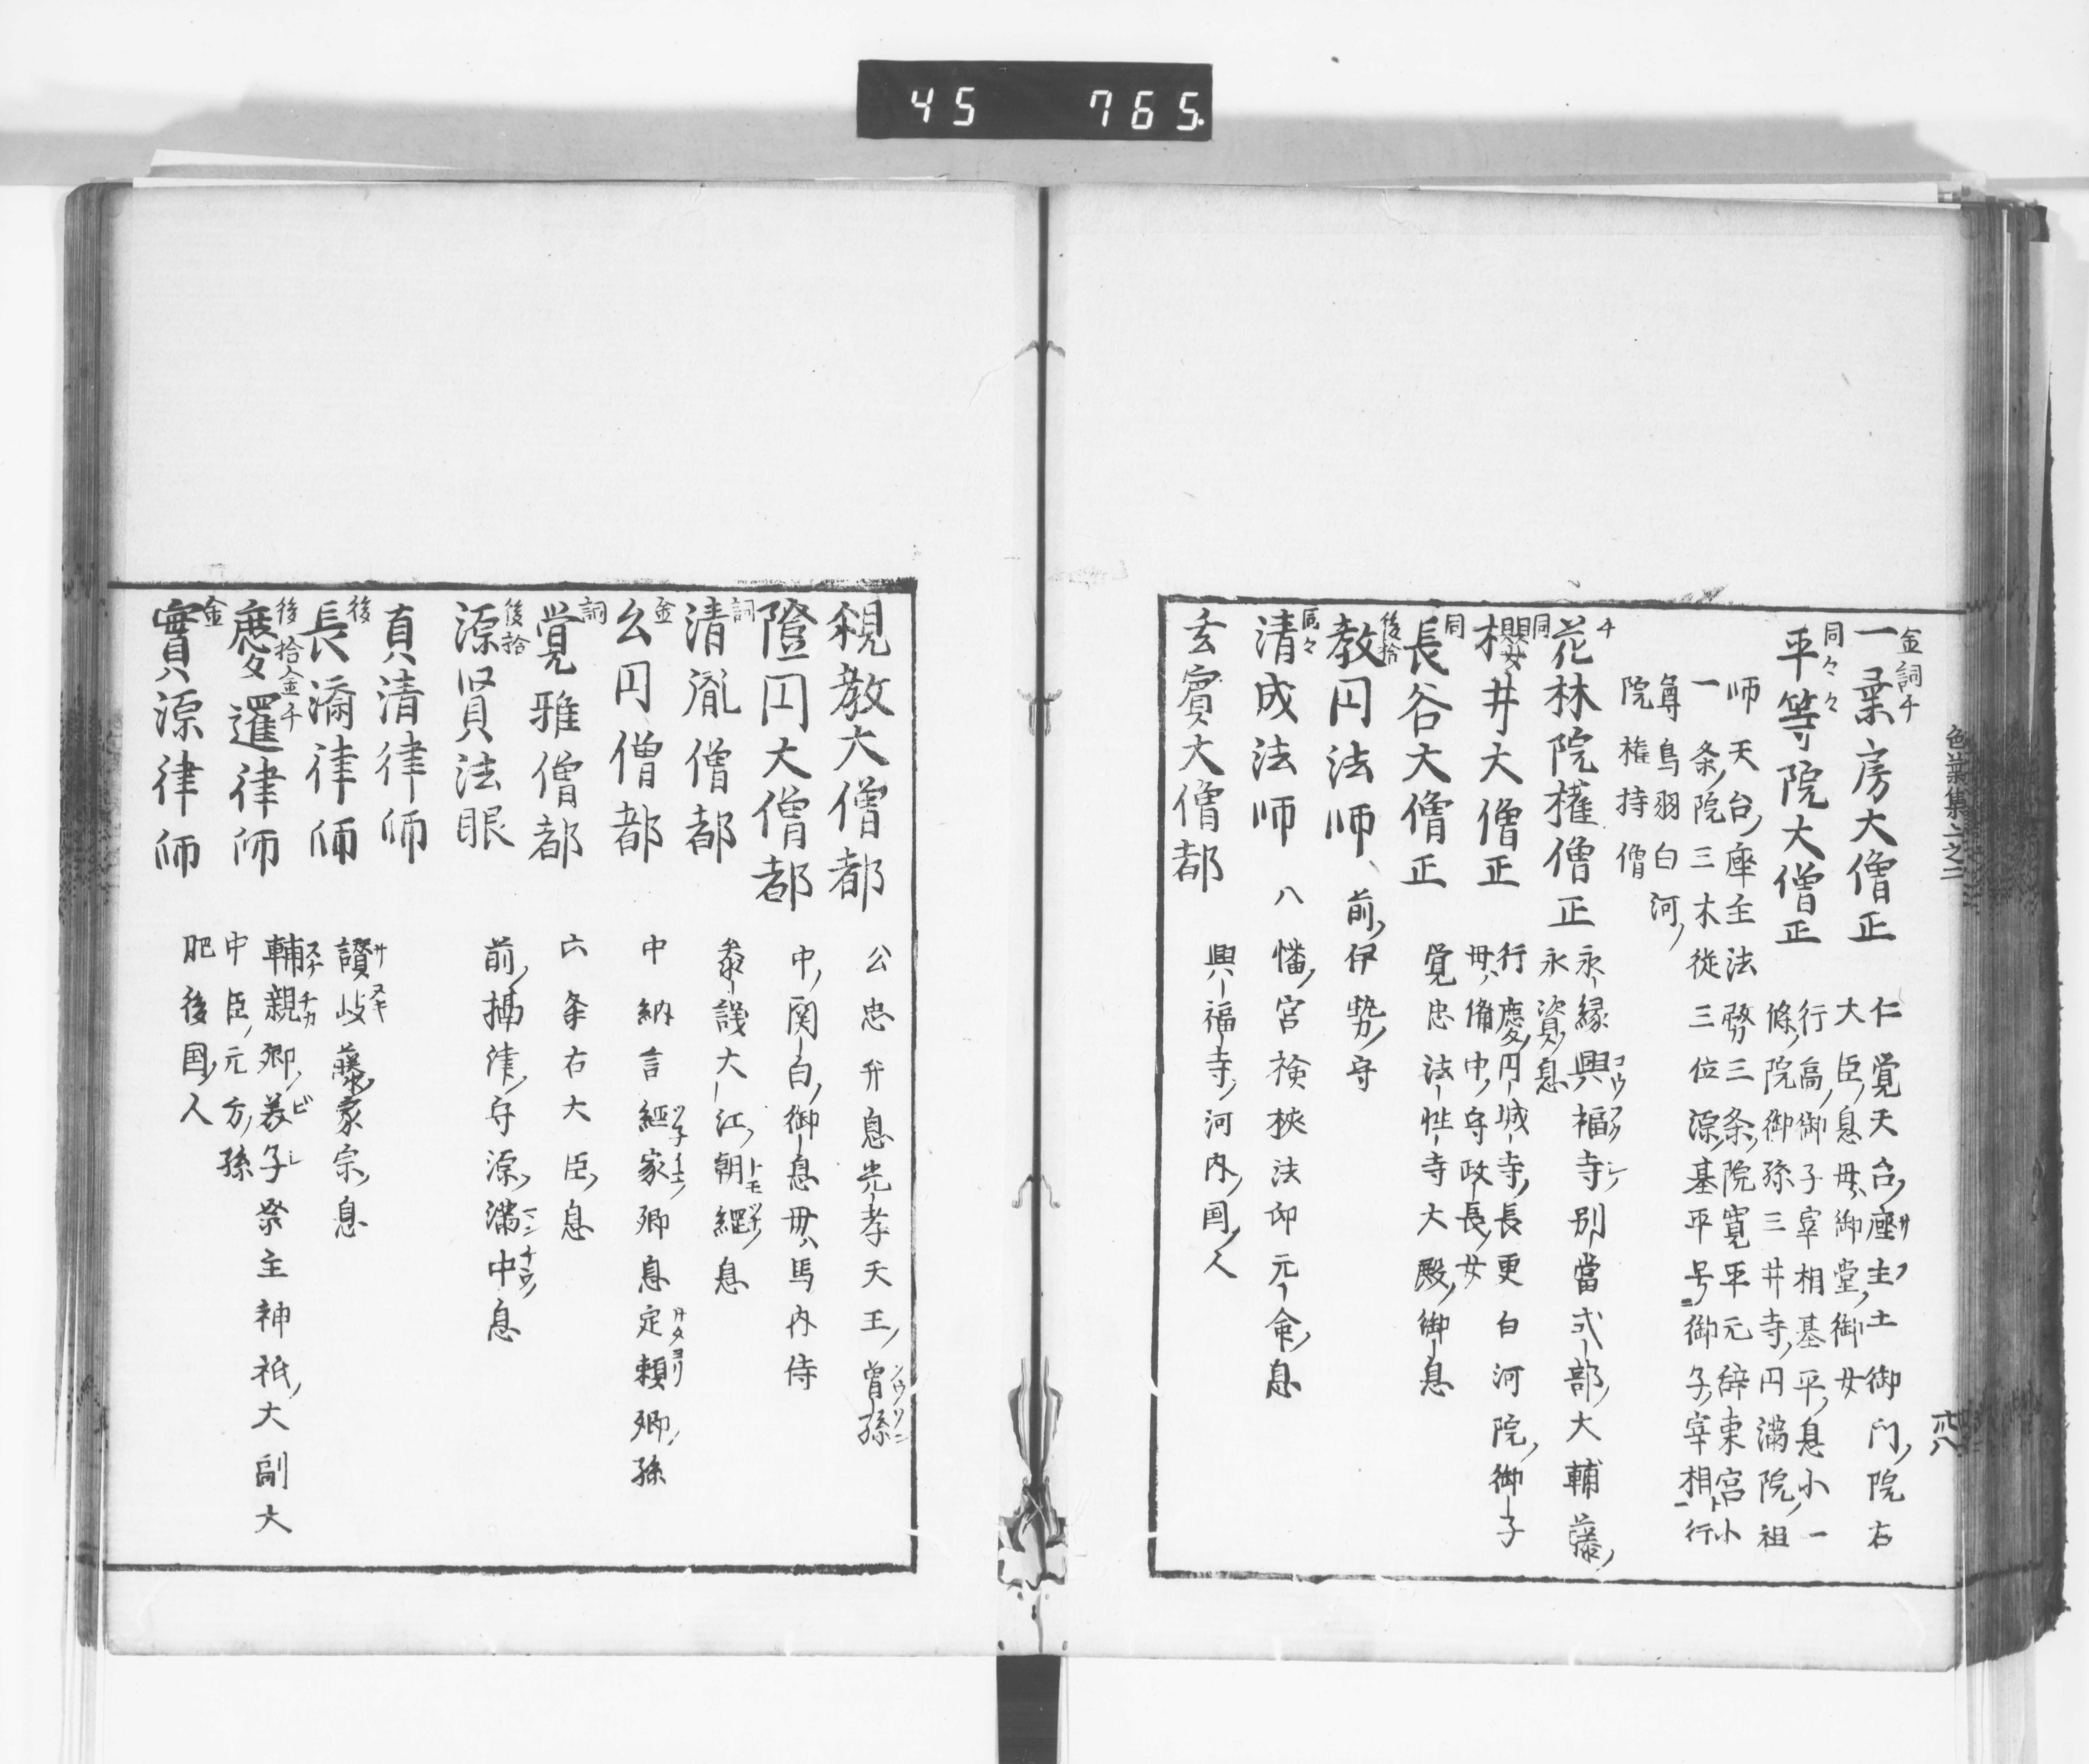 45 765
色葉集之二
金詞千
一乗房大僧正
仁覚天台座主土御門院右
大臣息母御堂御女
同々々
平等院大僧正
行高御子宰相基平息小一
條院御孫三井寺円満院祖
師天台座主法務三条院寛平元辞東宮小
一条院三木従三位源基平号御子宰相行
尊鳥羽白河
院権持僧
千
花林院権僧正
永縁興福寺別當式部大輔藤
永資息
コウフクシ
同
櫻井大僧正
行慶円城寺長更白河院御子
母備中守政長女
同
長谷大僧正
覚忠法性寺大殿御息
後拾
教円法師
前伊勢守
清成法師
八幡宮検挍法印元命息
玄賓大僧都
興福寺河内国人
観教大僧都
公忠弁息光孝天王曽孫
證円大僧都
中関白御息母ハ馬内侍
詞
清胤僧都
参議大江朝綱息
金
公円僧都
中納言経家卿息定頼卿孫
サタヨリ
詞
覚雅僧都
六条右大臣息
後拾
源賢法眼
前摂津守源満中息
真清律師
後
長済律師
讃岐藤家宗息
後拾金千
慶暹律師
輔親卿養子祭主神祇大副大
中臣元方孫
金
實源律師
肥後国人